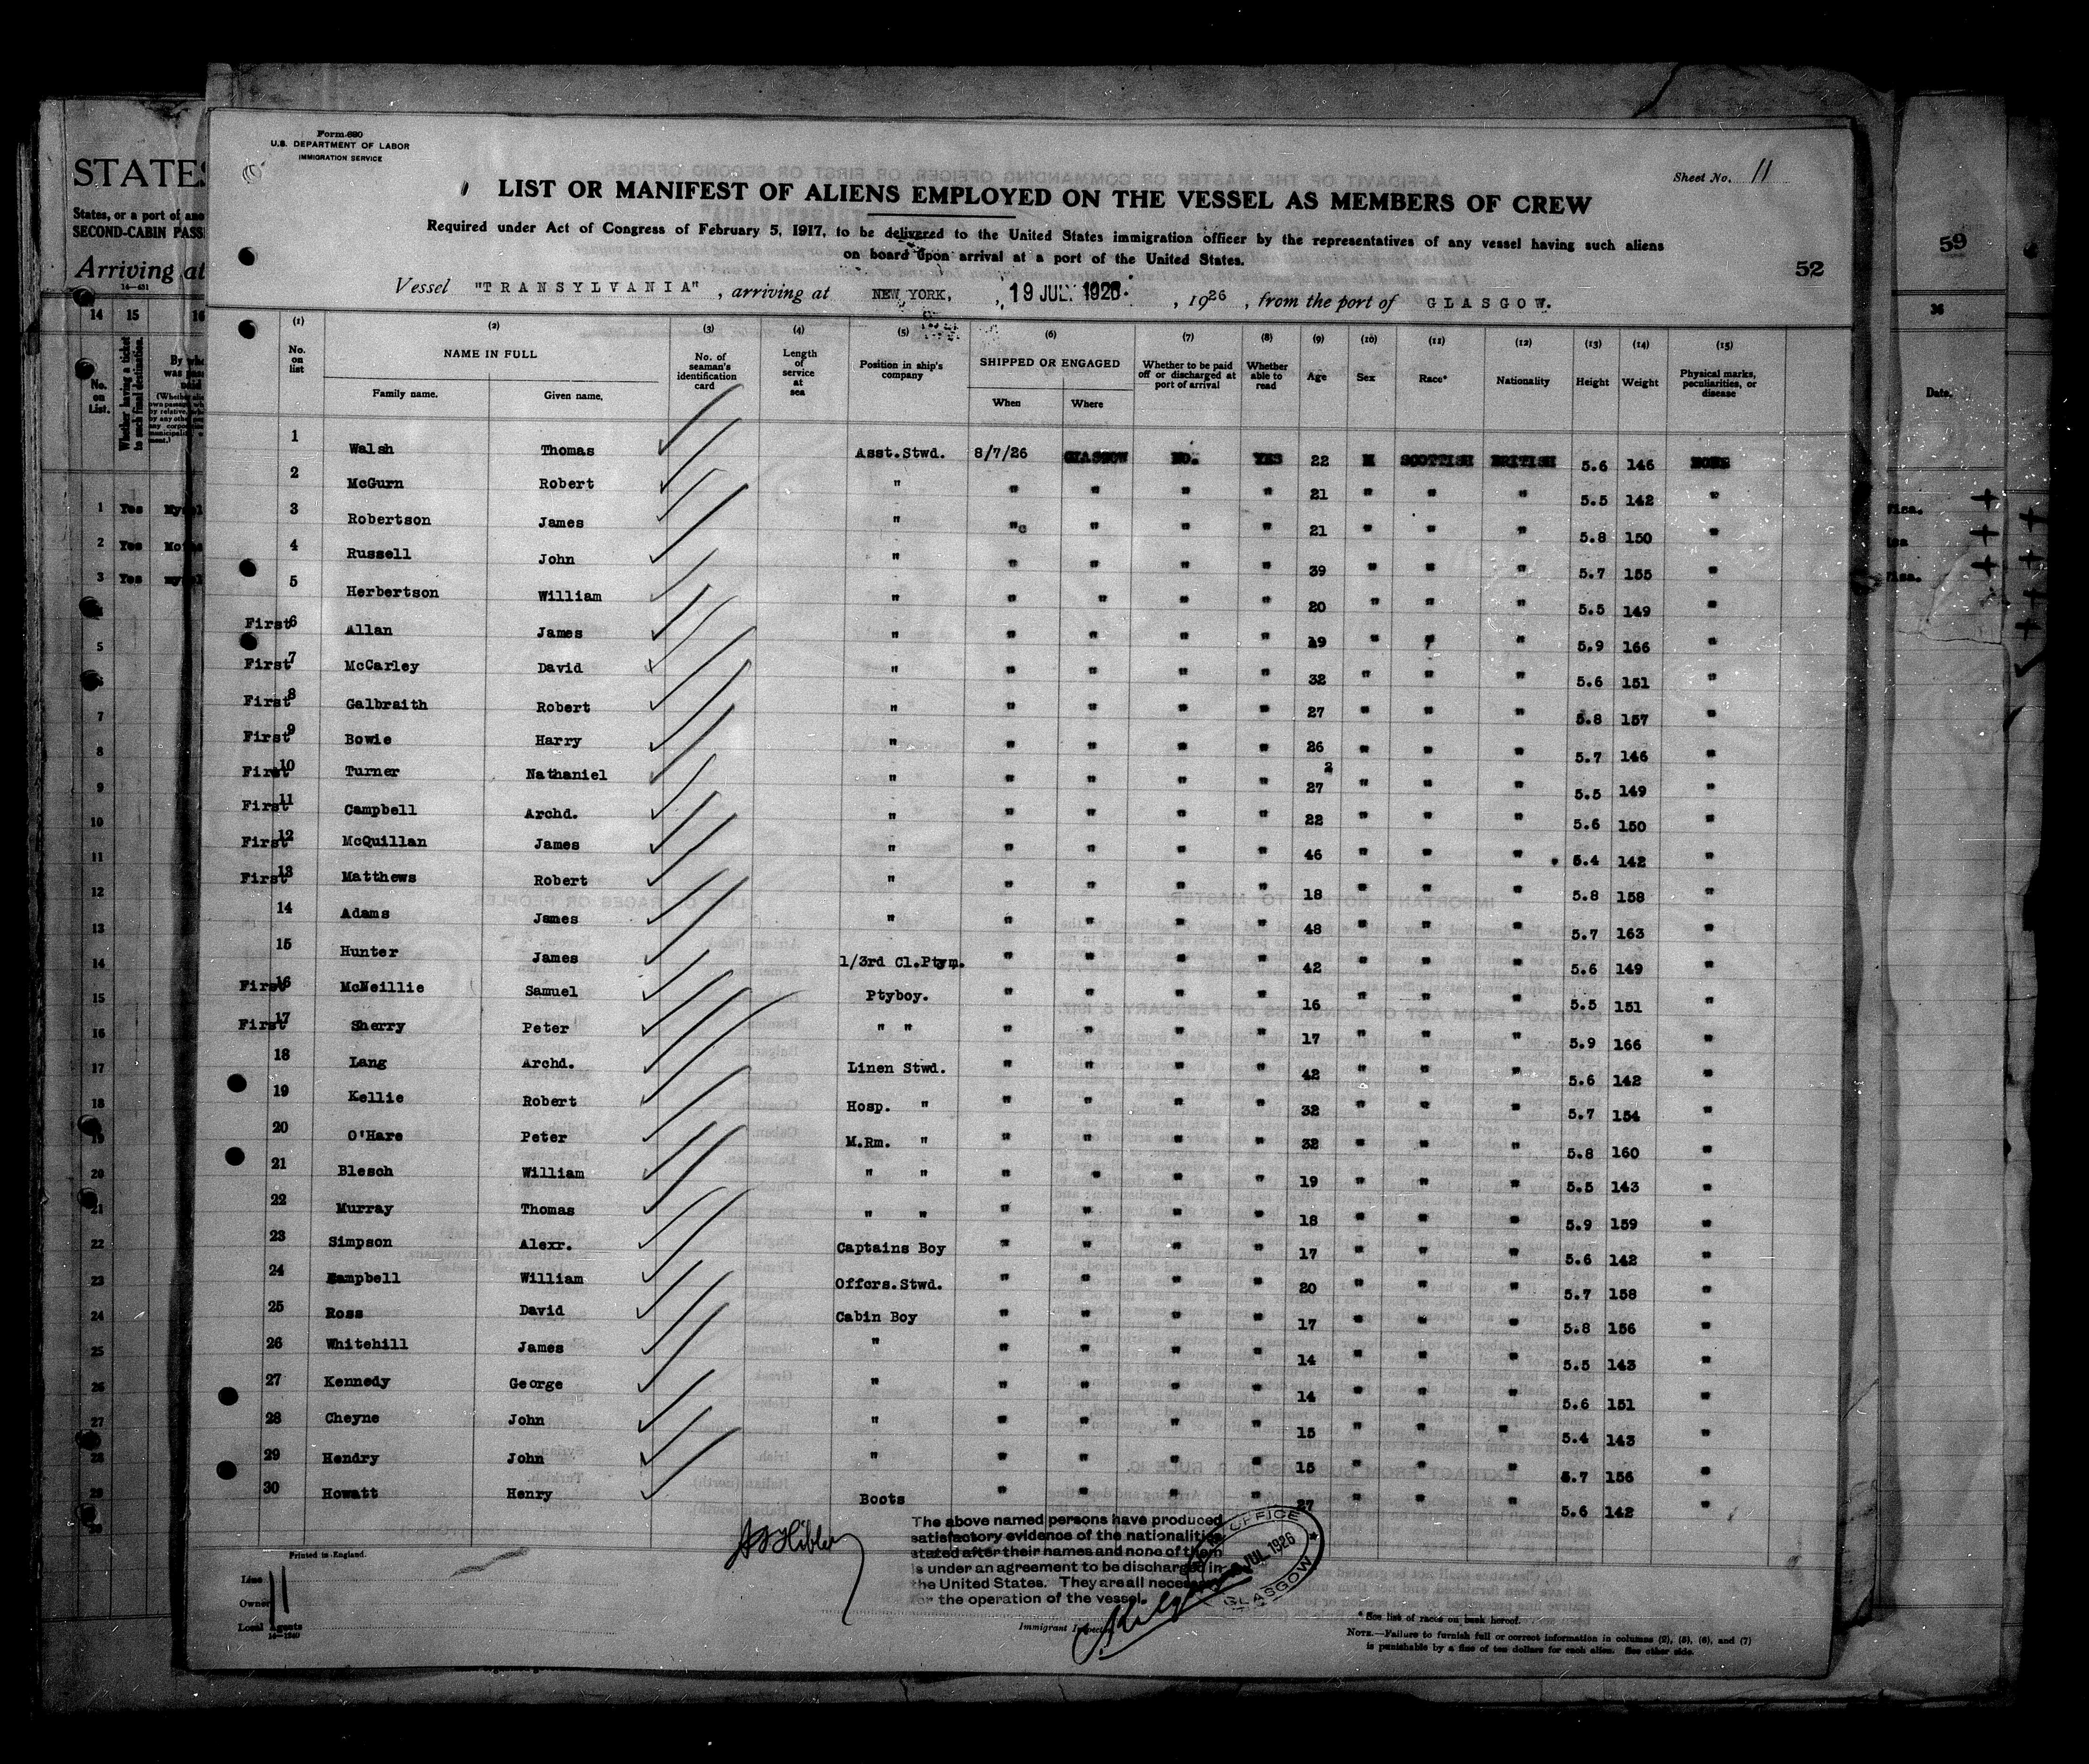 Form 680
U.S. DEPARTMENT OF LABOR
IMMIGRATION SERVICE
Sheet No. 11
LIST OR MANIFEST OF ALIENS EMPLOYED ON THE VESSEL AS MEMBERS OF CREW
Required under Act of Congress of February 5, 1917, to be delivered to the United States immigration officer by the representatives of any vessel having such aliens
on board upon arrival at a port of the United States.
52
Vessel "TRANSYLVANIA", arriving at NEW YORK, 19 JUL 1926, 1926, from the port of GLASGOW.
(1) (2) (3) (4) (5) (6) (7) (8) (9) (10) (11) (12) (13) (14) (15)
No. on list NAME IN FULL Family name. Given name, No. of seaman's identification card Length of service at sea Position in ship's company SHIPPED OR ENGAGED When Where Whether to be paid off or discharged at port of arrival Whether able to read Age Sex Race* Nationality Height Weight Physical marks, peculiarities, or disease
1 Walsh Thomas Asst.Stwd. 8/7/26 GLASGOW NO. YES 22 M SCOTTISH BRITISH 5.6 146 NONE
2 McGurn Robert " " " " " 21 " " " 5.5 142 "
3 Robertson James " " " " " 21 " " " 5.8 150 "
4 Russell John " " " " " 39 " " " 5.7 155 "
5 Herbertson William " " " " " 20 " " " 5.5 149 "
First 6 Allan James " " " " " 19 " " " 5.9 166 "
First 7 McCarley David " " " " " 32 " " " 5.6 151 "
First 8 Galbraith Robert " " " " " 27 " " " 5.8 157 "
First 9 Bowie Harry " " " " " 26 " " " 5.7 146 "
First 10 Turner Nathaniel " " " " " 27 " " " 5.5 149 "
First 11 Campbell Archd. " " " " " 22 " " " 5.6 150 "
First 12 McQuillan James " " " " " 46 " " " 5.4 142 "
First 13 Matthews Robert " " " " " 18 " " " 5.8 158 "
14 Adams James " " " " " 48 " " " 5.7 163 "
15 Hunter James 1/3rd Cl.Ptym. " " " " 42 " " " 5.6 149 "
First 16 McNeillie Samuel Ptyboy. " " " " 16 " " " 5.5 151 "
First 17 Sherry Peter " " " " " " 17 " " " 5.9 166 "
18 Lang Archd. Linen Stwd. " " " " 42 " " " 5.6 142 "
19 Kellie Robert Hosp. " " " " " 32 " " " 5.7 154 "
20 O'Hare Peter M.Rm. " " " " " 32 " " " 5.8 160 "
21 Blesch William " " " " " " 19 " " " 5.5 143 "
22 Murray Thomas " " " " " " 18 " " " 5.9 159 "
23 Simpson Alexr. Captains Boy " " " " 17 " " " 5.6 142 "
24 Campbell William Offcrs.Stwd. " " " " 20 " " " 5.7 158 "
25 Ross David Cabin Boy " " " " 17 " " " 5.8 156 "
26 Whitehill James " " " " " 14 " " " 5.5 143 "
27 Kennedy George " " " " " 14 " " " 5.6 151 "
28 Cheyne John " " " " " 15 " " " 5.4 143 "
29 Hendry John " " " " " 15 " " " 5.7 156 "
30 Howatt Henry Boots " " " " 27 " " " 5.6 142 "
The above named persons have produced
satisfactory evidence of the nationalities
stated after their names and none of them
is under an agreement to be discharged in
the United States. They are all necessary
for the operation of the vessel.
OFFICE
JUL 1926
GLASGOW
Printed in England.
Line
Owner 11
Local Agents
14—1240
Immigrant Inspector
* See list of races on back hereof.
NOTE.—Failure to furnish full or correct information in columns (2), (5), (6), and (7)
is punishable by a fine of ten dollars for each alien. See other side.
STATES
States, or a port of
SECOND-CABIN
Arriving at
14 15 16
No. on List.
Whether having a ticket to such final destination.
1 Yes
2 Yes
3 Yes
59
36
Date.